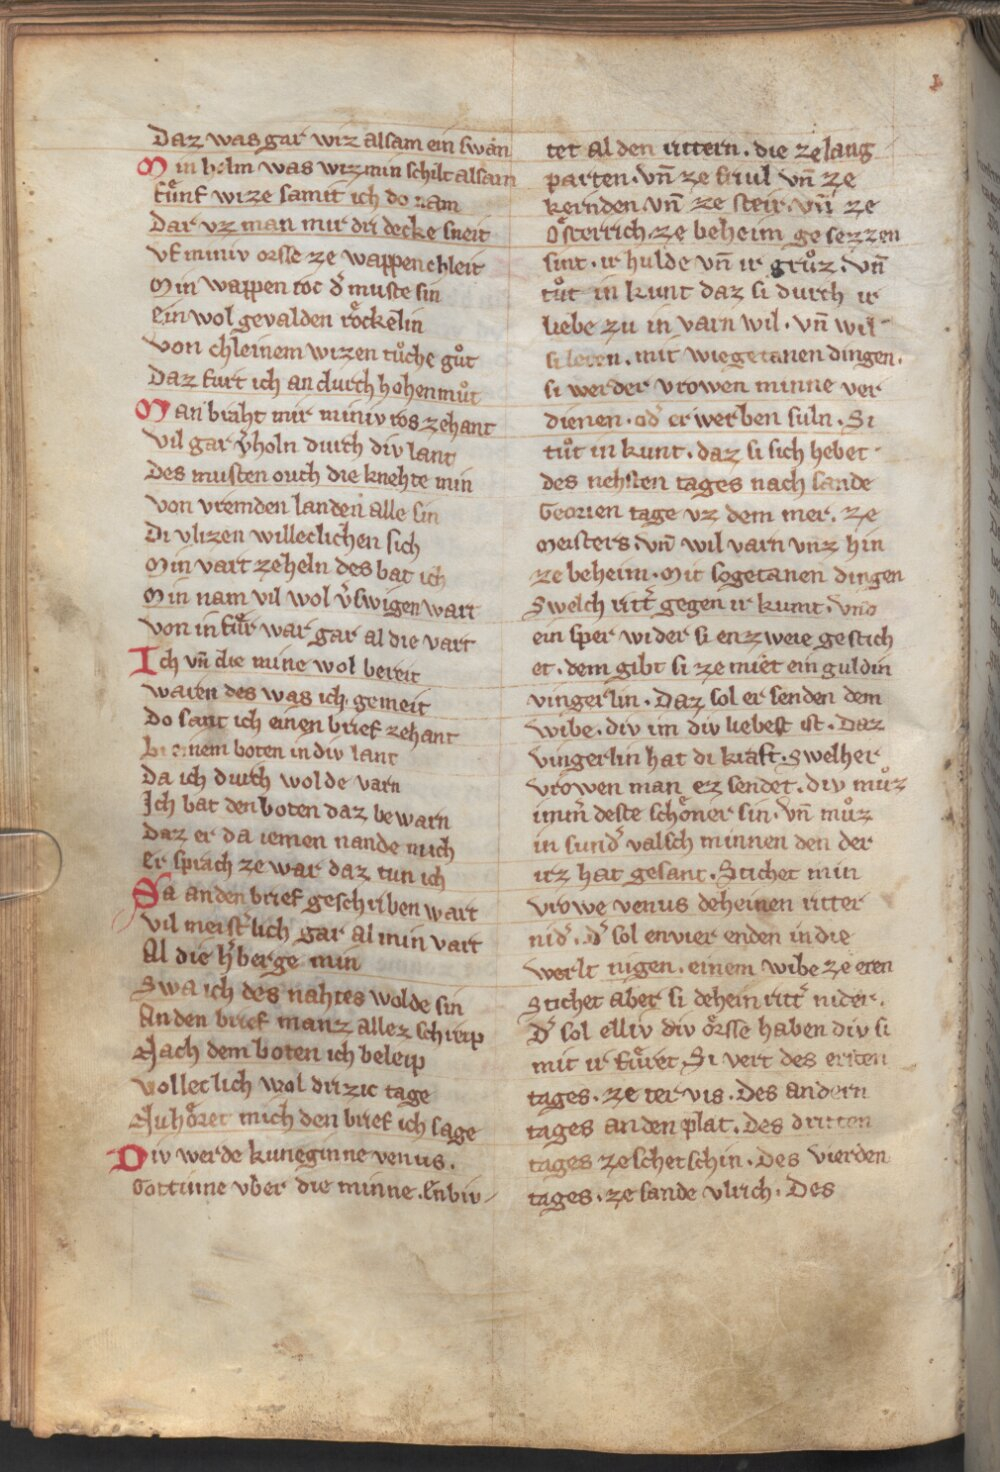 Daz was gar wiz alsam ein swan
Min helm was wiz min schilt alsam
fuͤnf wize samit ich do nam
Dar vz man mir dri decke sneit
vf miniv orsse ze wappenchleit
Min wappen roc dˀ muste sin
ein wol gevalden roͤckelin
von chleinem wizen tuͦche guͦt
Daz furt ich an durch hohen muͦt
Man braht mir miniv ros zehant
vil gar vˀholn durch div lant
Des musten ouch die knehte min
von vremden landen alle sin
Di vlizen willeclichen sich
Min vart ze heln des bat ich
Min nam vil wol vˀswigen wart
von in fuͦr war gar al die vart
Ich vn̄ die mine wol bereit
waren des was ich gemeit
Do sant ich einen brief zehant
bi einem boten in div lant
Da ich durch wolde varn
Ich bat den boten daz bewarn
Daz er da iemen nande mich
er sprach ze war daz tun ich
Sa an den brief geschriben wart
vil meistˀlich gar al min vart
Al die hˀberge min
Swa ich des nahtes wolde sin
An den brief manz allez schreip
Nach dem boten ich beleip
volleclich wol drizic tage
Nu hoͤret mich den brief ich sage
Div werde kuneginne venus.
Gottinne vber die minne. Enbiv-
tet al den rittern. die ze lang
parten. vn̄ ze friul vn̄ ze
kernden vn̄ ze steir. vn̄ ze
Oͤsterrich. ze beheim gesezzen
sint. ir hulde vn̄ ir gruͦz. vn̄
tuͦt in kunt daz si durch ir
liebe zu in varn wil. vn̄ wil
si leren. mit wiegetanen dingen.
si werder vrowen minne ver
dienen. odˀ erwerben suln. Si
tuͦt in kunt. daz si sich hebet
des nehsten tages nach sande
Georien tage vz dem mer. ze
Meisters. vn̄ wil varn vnz hin
ze beheim. Mit sogetanen dingen
Swelch rittˀ gegen ir kumt. vnd
ein sper wider si enzweie gestich
et. dem gibt si ze miet ein guldin
vingerlin. Daz sol er senden dem
wibe. div im div liebest ist. Daz
vingerlin hat di kraft. Swelher
vrowen man ez sendet. div muͦz
immˀ deste schoͤner sin. vn̄ muͦz
in sundˀ valsch minnen den der
irz hat gesant. Stichet min
vrowe venus deheinen ritter
nidˀ. dˀ sol envier enden in die
werlt nigen. einem wibe ze eren
Stichet aber si dehein rittˀ nider.
Dˀ sol elliv div oͤrsse haben div si
mit ir fuͤret. Si vert des ersten
tages. ze tervis. Des andern
tages an den plat. Des dritten
tages ze schetschin. Des vierden
tages. ze sande vlrich. Des